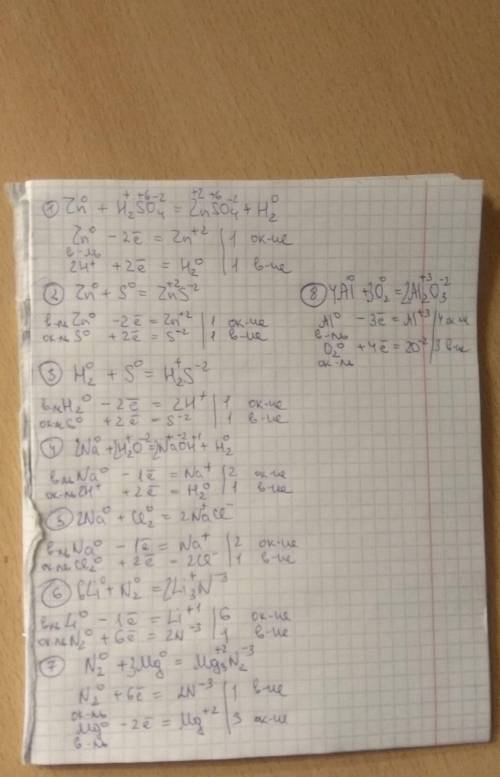 ① Zn⁰ + H₂⁺S⁺⁶O₄⁻² = Zn⁺²S⁺⁶O₄⁻² + H₂⁰
Zn⁰ - 2ē = Zn⁺² | 1 ок-ие
в-ль
2H⁺ + 2ē = H₂⁰ | 1 в-ие
② Zn⁰ + S⁰ = Zn⁺²S⁻²
в-ль Zn⁰ - 2ē = Zn⁺² | 1 ок-ие
ок-ль S⁰ + 2ē = S⁻² | 1 в-ие
③ H₂⁰ + S⁰ = H₂⁺S⁻²
в-ль H₂⁰ - 2ē = 2H⁺ | 1 ок-ие
ок-ль S⁰ + 2ē = S⁻² | 1 в-ие
④ 2Na⁰ + 2H₂⁺O⁻² = 2Na⁺O⁻²H⁺¹ + H₂⁰
в-ль Na⁰ - 1ē = Na⁺ | 2 ок-ие
ок-ль 2H⁺ + 2ē = H₂⁰ | 1 в-ие
⑤ 2Na⁰ + Cl₂⁰ = 2Na⁺Cl⁻
в-ль Na⁰ - 1ē = Na⁺ | 2 ок-ие
ок-ль Cl₂⁰ + 2ē - 2Cl⁻ | 1 в-ие
⑥ 6Li⁰ + N₂⁰ = 2Li₃⁺N⁻³
в-ль Li⁰ - 1ē = Li⁺¹ | 6 ок-ие
ок-ль N₂⁰ + 6ē = 2N⁻³ | 1 в-ие
⑦ N₂⁰ + 3Mg⁰ = Mg₃⁺²N₂⁻³
N₂⁰ + 6ē = 2N⁻³ | 1 в-ие
ок-ль
Mg⁰ - 2ē = Mg⁺² | 3 ок-ие
в-ль
⑧ 4Al⁰ + 3O₂⁰ = 2Al₂⁺³O₃⁻²
Al⁰ - 3ē = Al⁺³ | 4 ок-ие
в-ль
O₂⁰ + 4ē = 2O⁻² | 3 в-ие
ок-ль